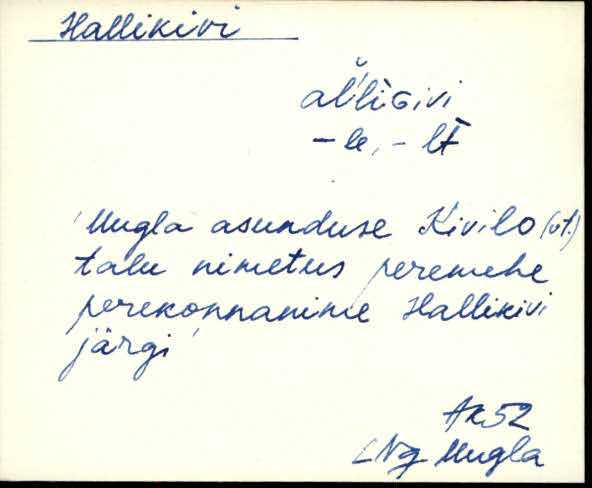 Hallikivi
al̆'liGivi
-le, - lt
Uugla asunduse Kivilo (vt.)
talu nimetus peremehe
perekonnanime Hallikivi
järgi
AK 52
LNg Uugla